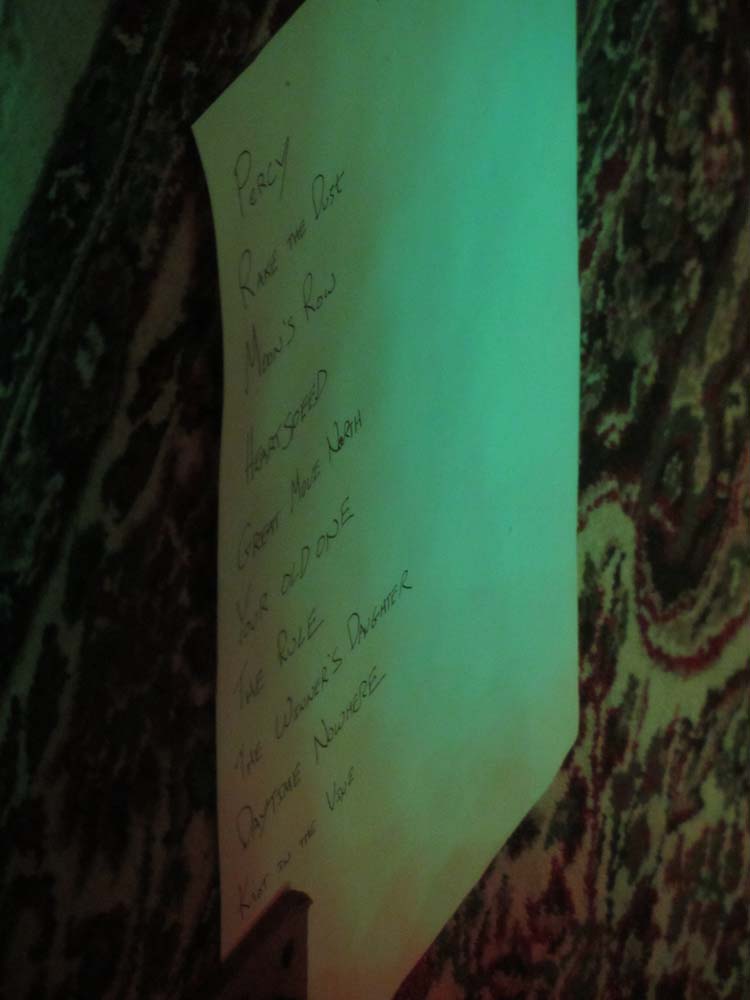 PERCY
RAKE THE DUST
MOON'S ROW
HEARTSPEED
GREAT MOVE NORTH
YOUR OLD ONE
THE RULE
THE WINNER'S DAUGHTER
DAYTIME NOWHERE
KNOT IN THE VINE